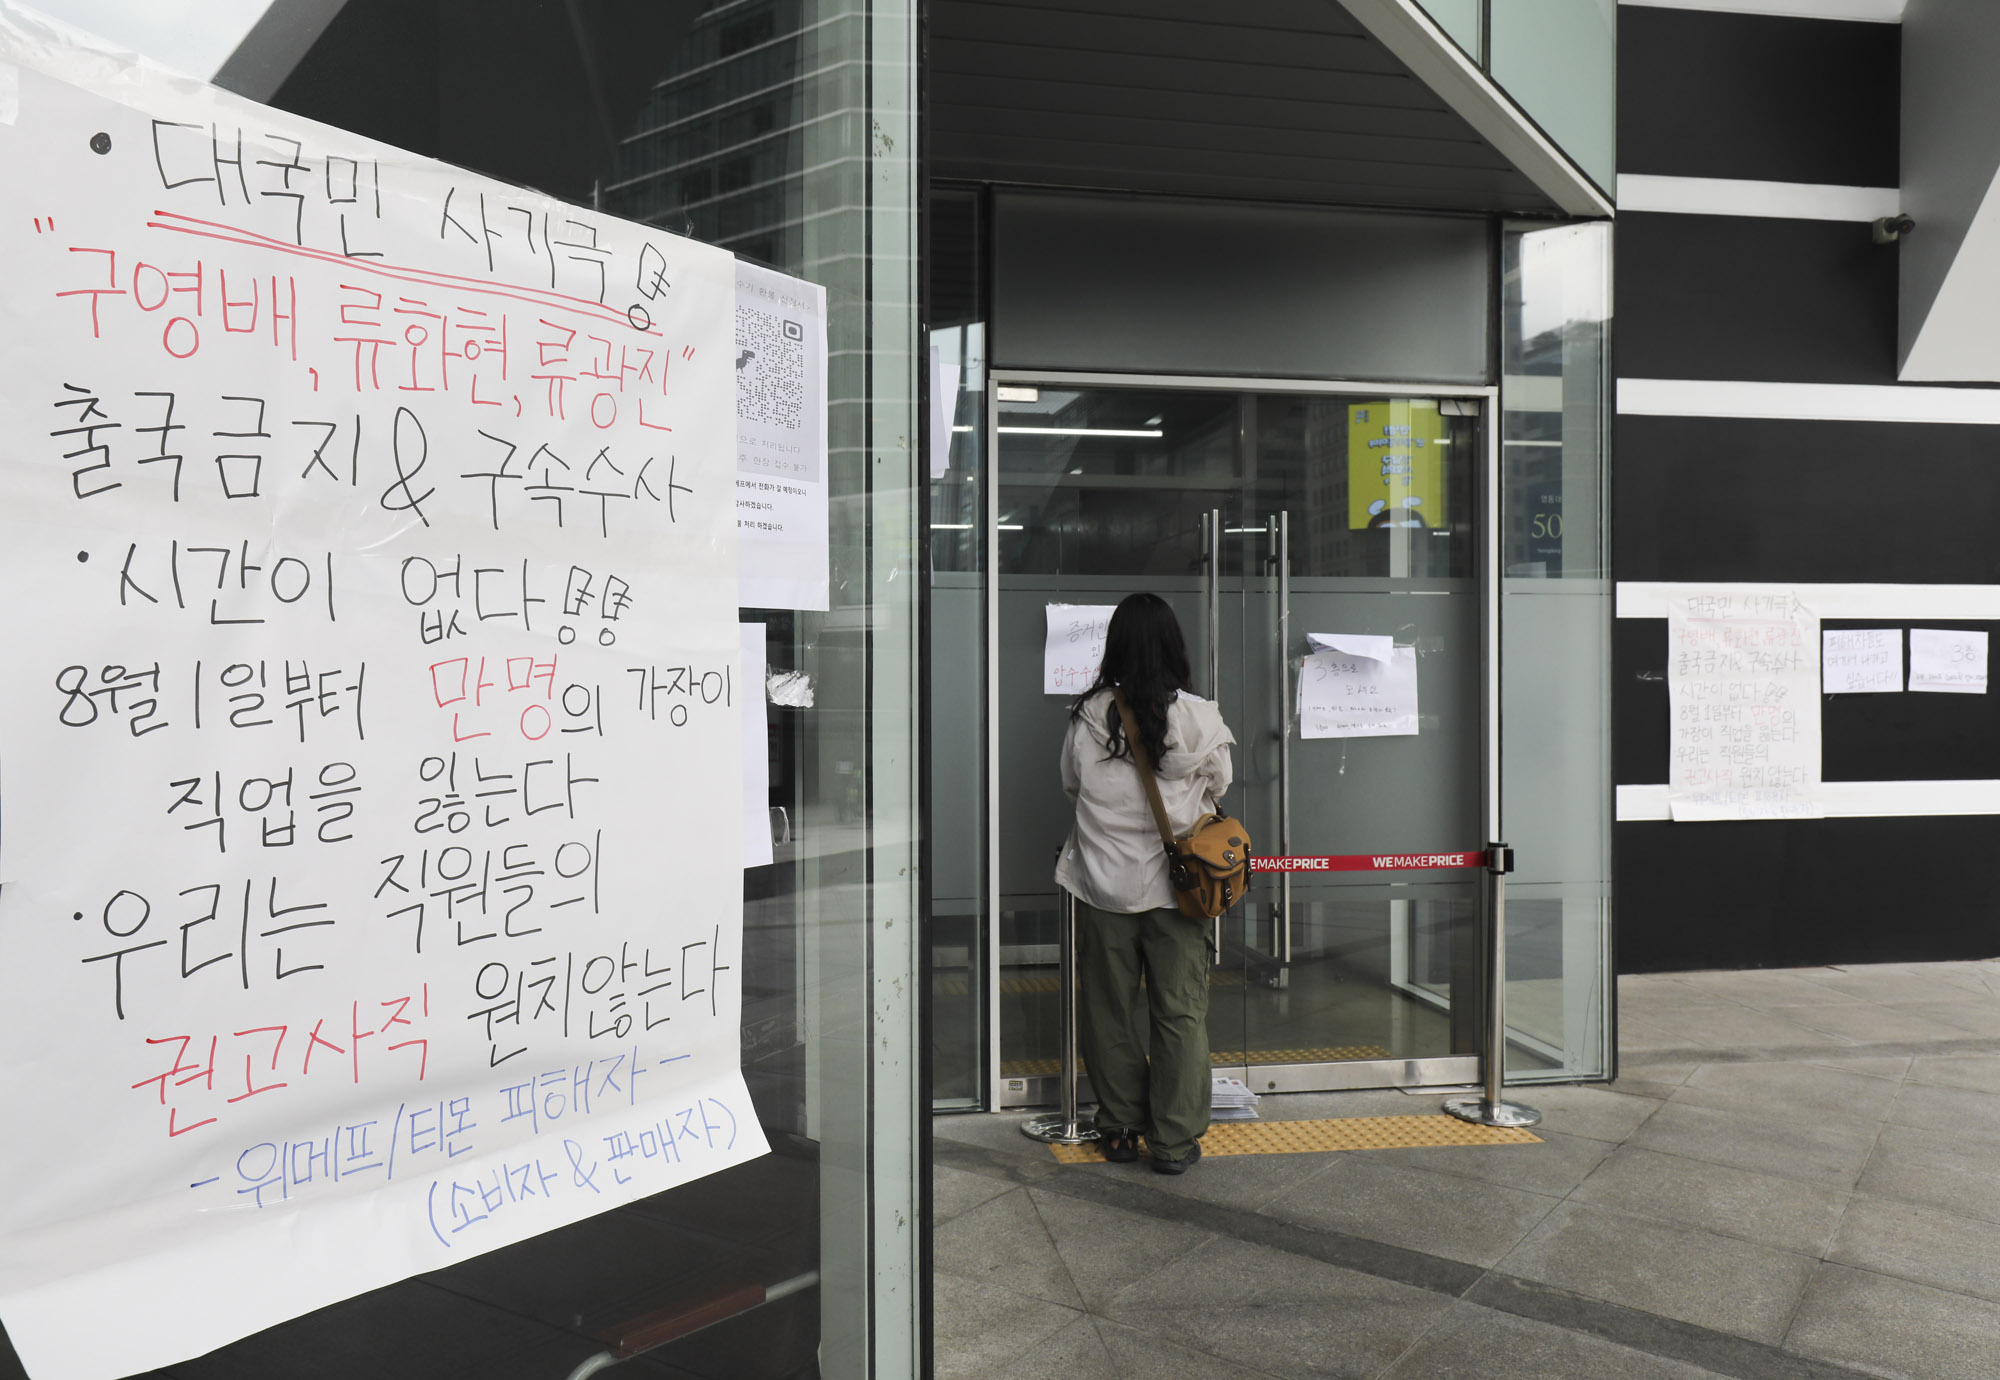 • 대국민 사기극!
"구영배, 류화현, 류광진"
출국금지 & 구속수사
• 시간이 없다!!
8월 1일부터 만명의 가장이
직업을 잃는다
• 우리는 직원들의
권고사직 원치않는다
- 위메프/티몬 피해자 -
(소비자 & 판매자)
으로 처리됩니다
현장 접수 불가
전화가 갈 예정이오니
처리 하겠습니다.
압수수
3층으로
WEMAKEPRICE
50
대국민 사기극!
"구영배, 류화현, 류광진"
출국금지 & 구속수사
시간이 없다!!
8월 1일부터 만명의
가장이 직업을 잃는다
우리는 직원들의
권고사직 원치않는다
- 위메프/티몬 피해자 -
피해자들도
여기서 나가고
싶습니다!!
3층